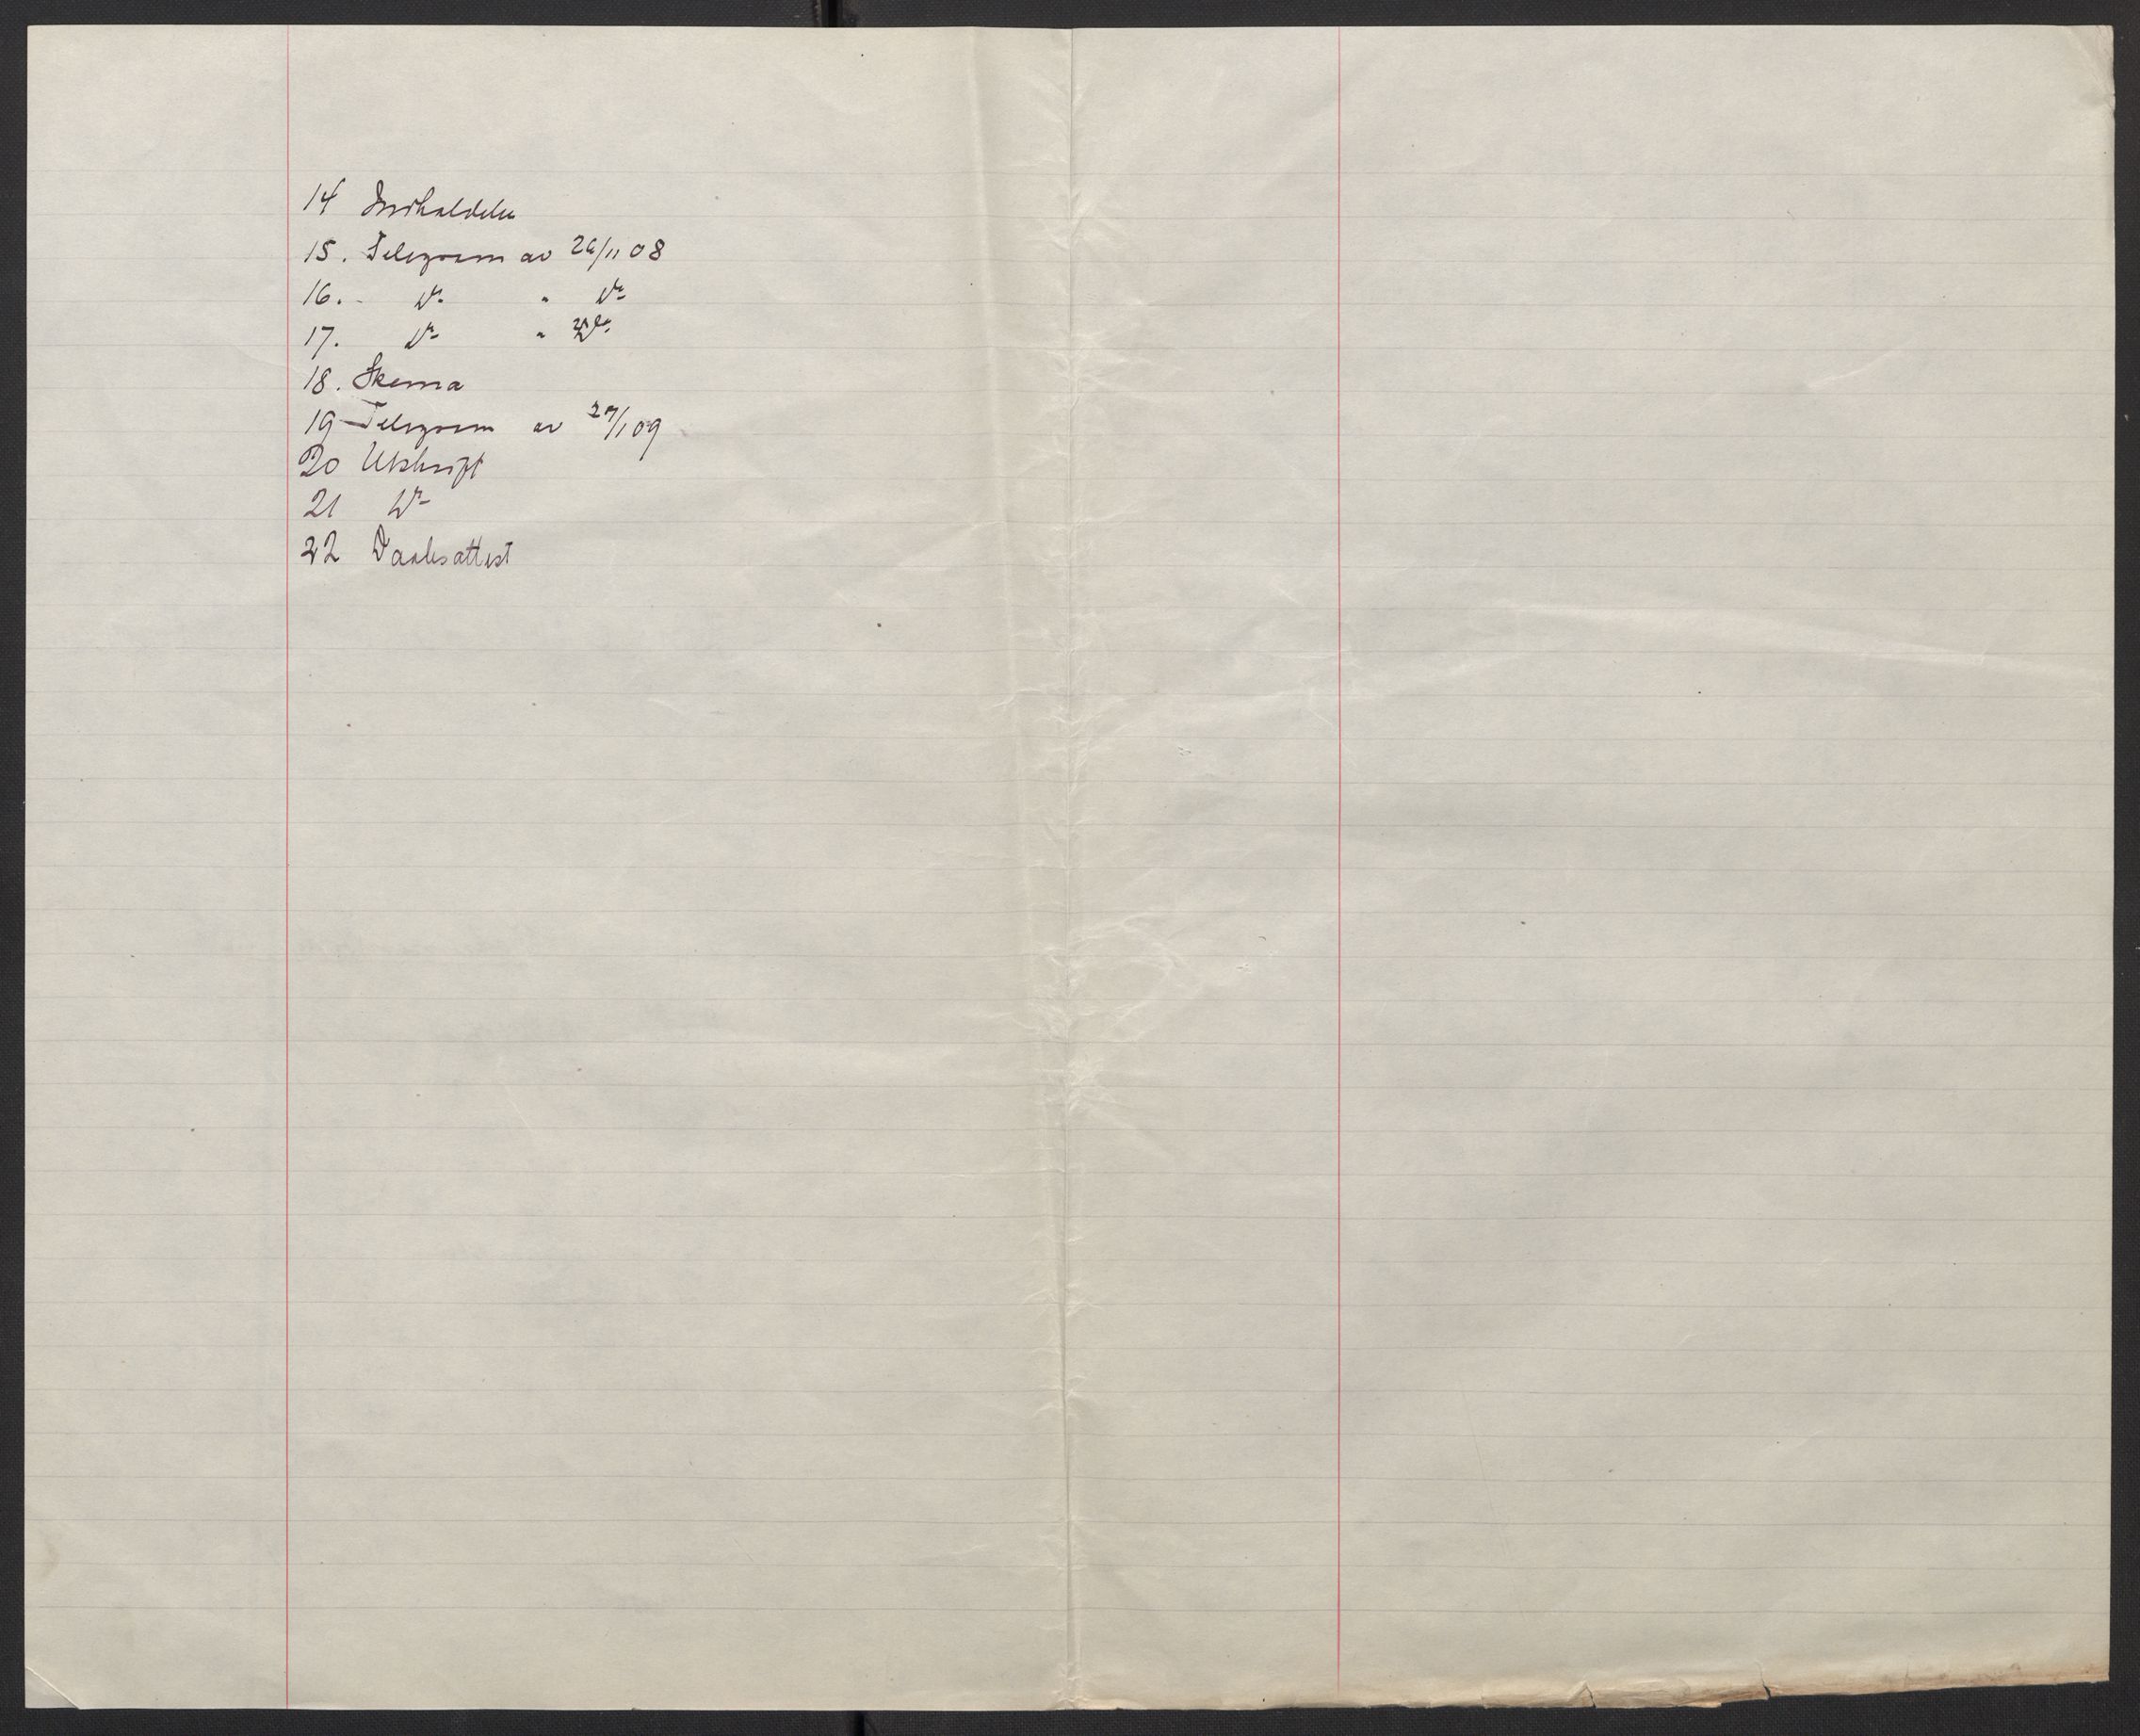 14 Indkaldelse
15. Telegram av 26/11 08
16. - Do. " Do
17. Do "
18. Skema
19 - Telegram av 27/1 09
20 Utskrift
21 Do
22 Daabsattest